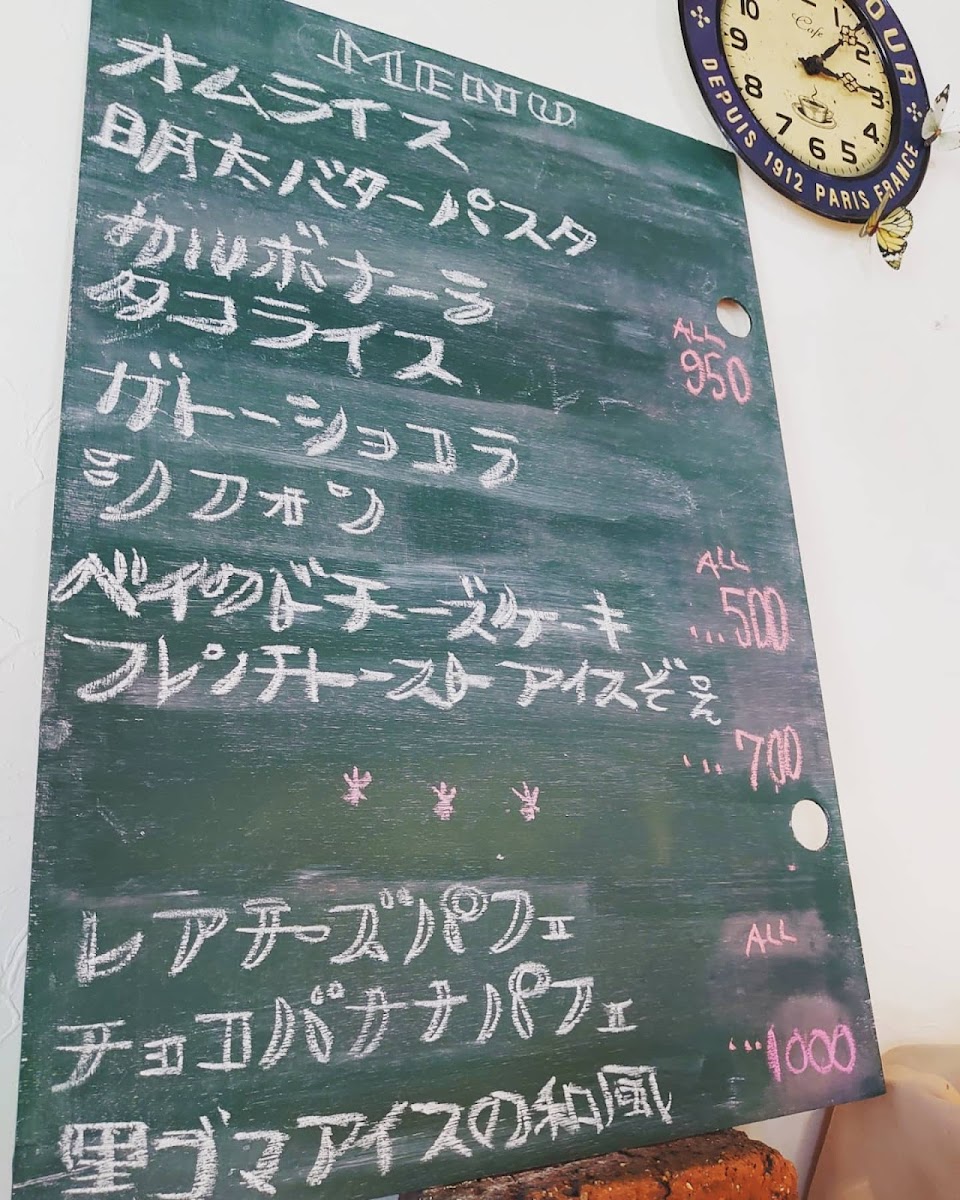 MENU
オムライス
明太バターパスタ
カルボナーラ
タコライス
ALL
950
ガトーショコラ
シフォン
ALL
ベイクドチーズケーキ
...500
フレンチトースト アイスぞえ
...700
* * *
レアチーズパフェ
ALL
チョコバナナパフェ
...1000
黒ゴマアイスの和風
OUR
DEPUIS 1912 PARIS FRANCE
Cafe
10 1 2 3 4 5 6 7 8 9